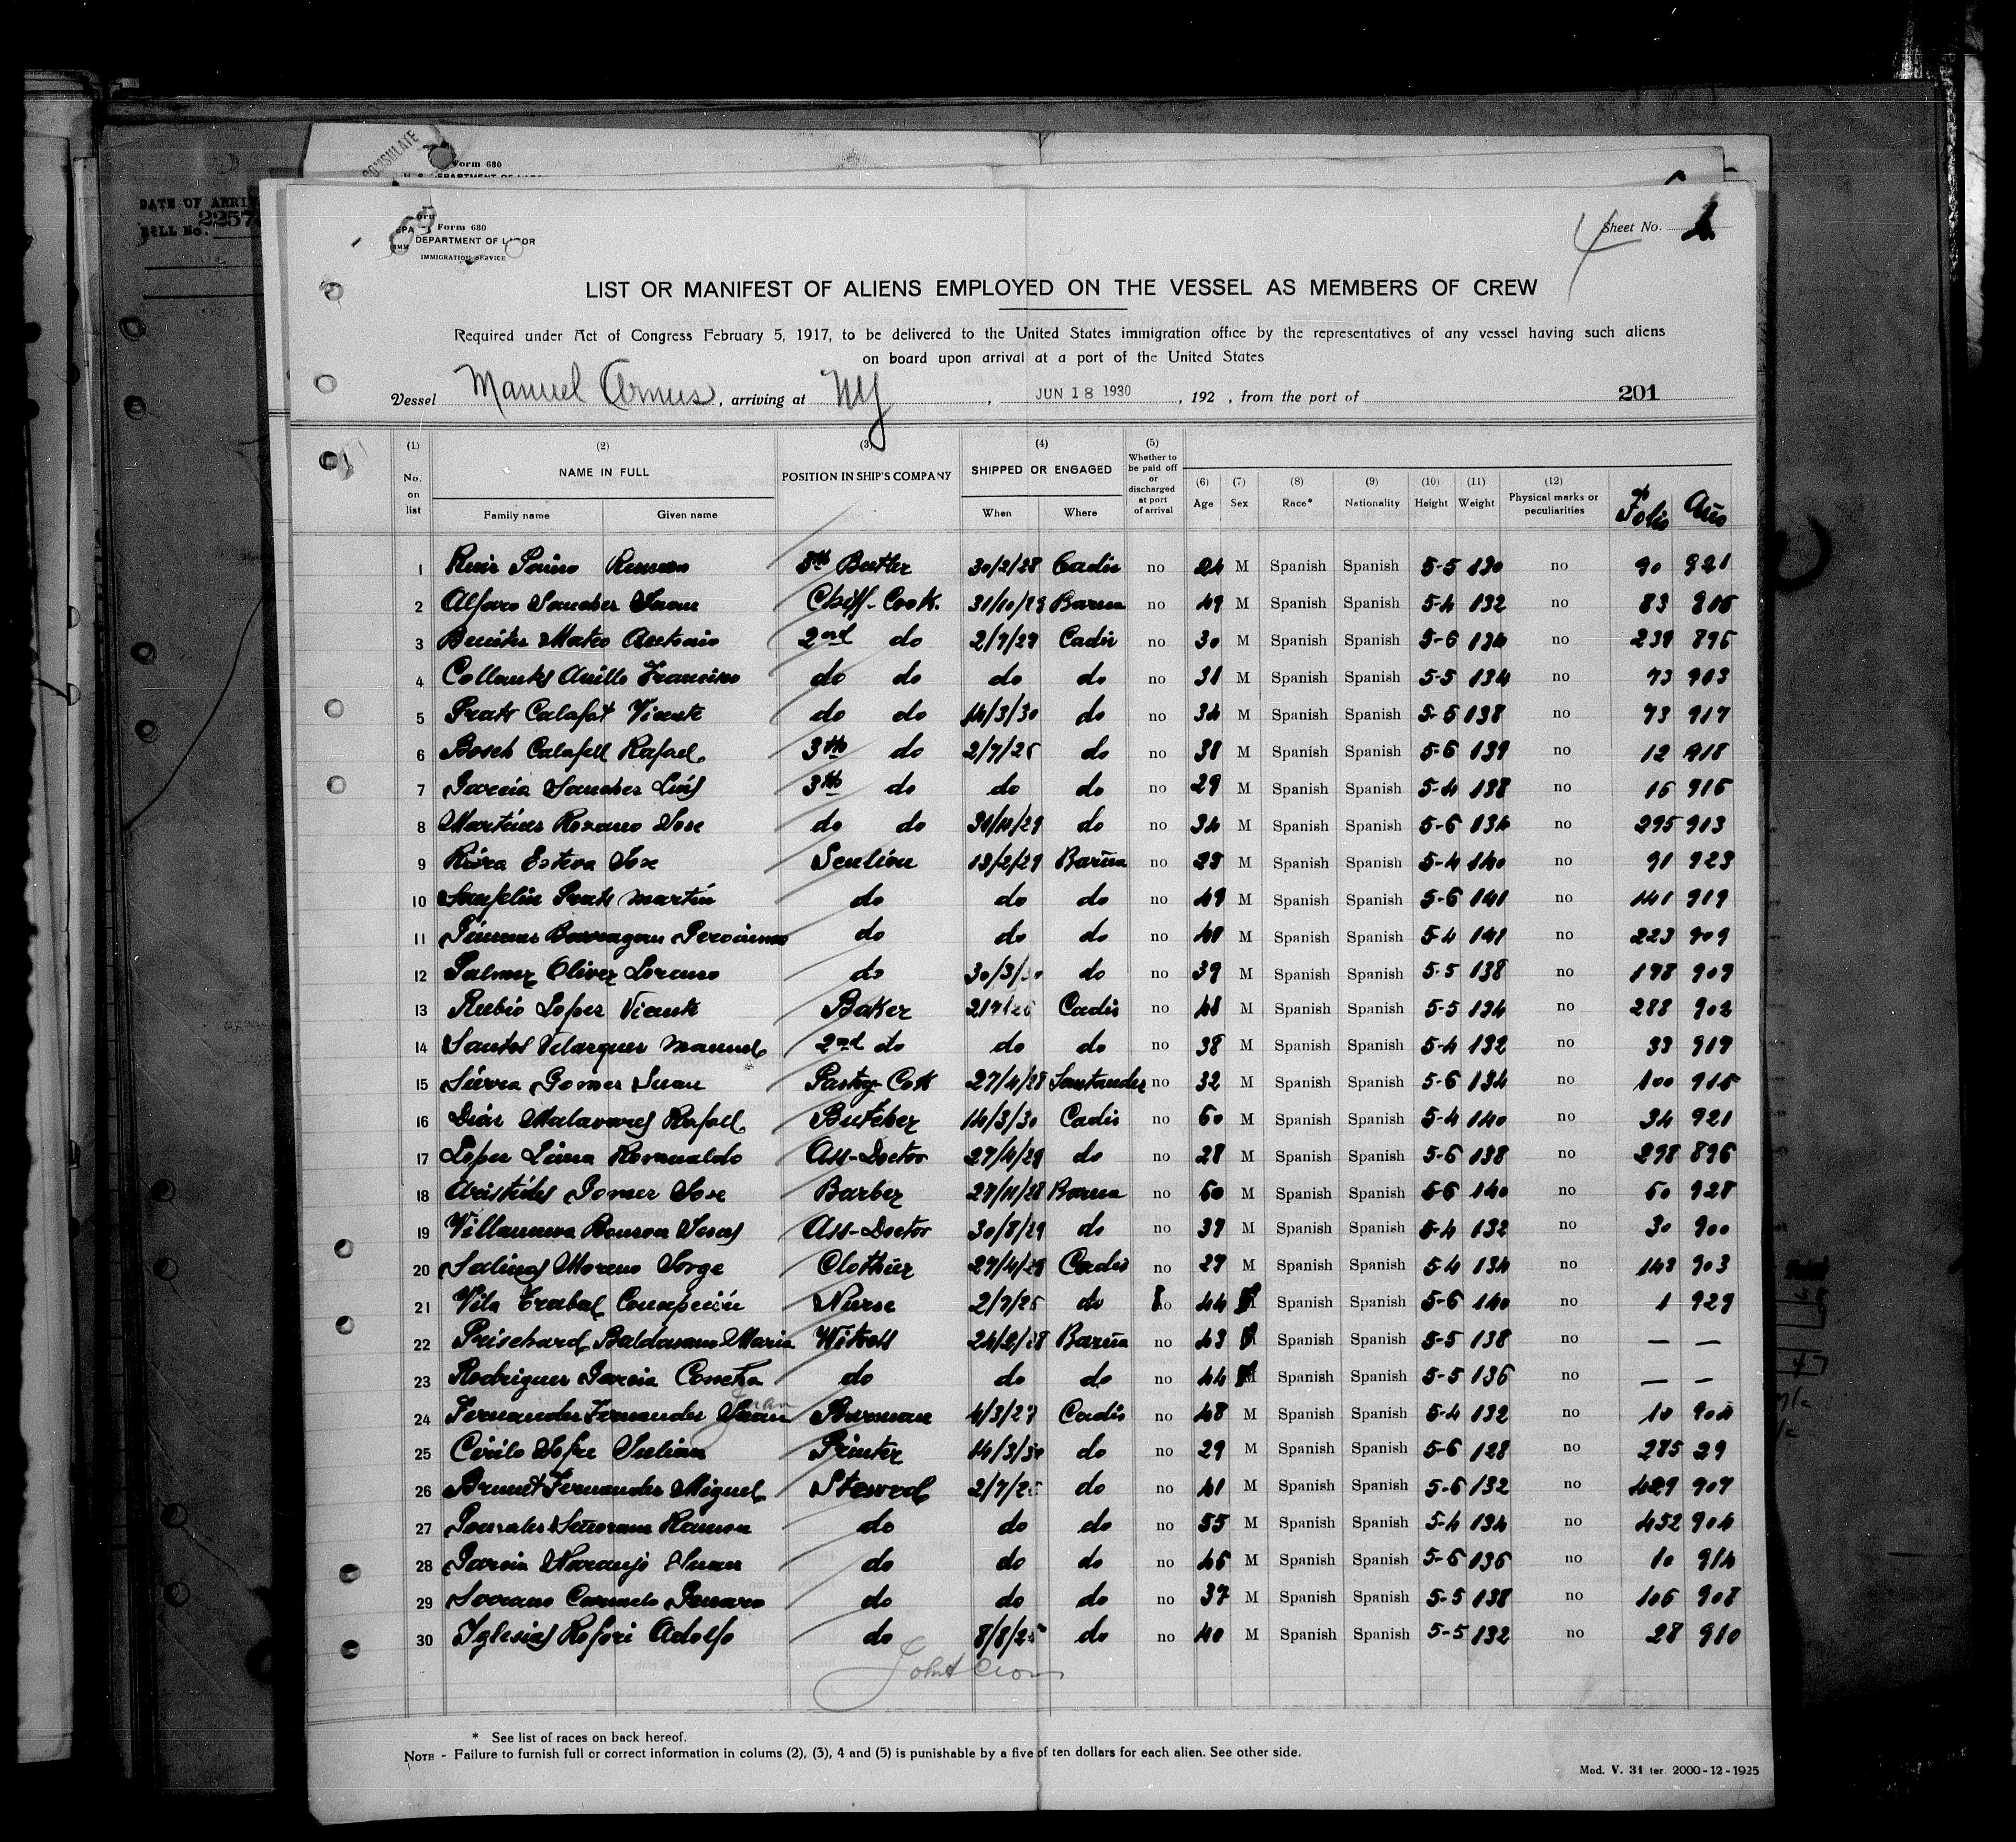 CONSULATE
Form 680
DATE OF ARRI
2257
ROLL No.
Form 680
DEPARTMENT OF LABOR
IMMIGRATION SERVICE
4 Sheet No.
LIST OR MANIFEST OF ALIENS EMPLOYED ON THE VESSEL AS MEMBERS OF CREW
Required under Act of Congress February 5, 1917, to be delivered to the United States immigration office by the representatives of any vessel having such aliens
on board upon arrival at a port of the United States
Vessel Manuel Arnus, arriving at NY, JUN 18 1930, 192 , from the port of 201
(1) No. on list (2) NAME IN FULL Family name Given name (3) POSITION IN SHIP'S COMPANY (4) SHIPPED OR ENGAGED When Where (5) Whether to be paid off or discharged at port of arrival (6) Age (7) Sex (8) Race* (9) Nationality (10) Height (11) Weight (12) Physical marks or peculiarities Folio Año
1 Ramon Butler 30/2/28 Cadiz no 24 M Spanish Spanish 5-5 130 no 90 921
2 Alfaro Sanches Juan Chiff-Cook. 31/10/29 Barna no 49 M Spanish Spanish 5-4 132 no 83
3 Benites Mateo Antonio 2nd do 2/7/29 Cadiz no 30 M Spanish Spanish 5-6 134 no 239
4 Francisco do do do do no 31 M Spanish Spanish 5-5 134 no 73 903
5 Prats Calafat Vicente do do 14/3/30 do no 34 M Spanish Spanish 5-6 138 no 73 917
6 Bosch Calafell Rafael 3th do do no M Spanish Spanish 5-6 139 no 12 918
7 Garcia Sanches Luis 3th do do do no 29 M Spanish Spanish 5-4 138 no
8 Martines Rosano Jose do do do no 34 M Spanish Spanish 5-6 134 no 295 913
9 Riera Esteva Jose 13/2/29 Barna no M Spanish Spanish 5-4 140 no 91 923
10 Prats Martin do do do no 49 M Spanish Spanish 5-6 141 no 141 919
11 Barragan Geronimo do do do no M Spanish Spanish 5-4 141 no 223 909
12 Palmer Oliver Lorenso do do no 39 M Spanish Spanish 5-5 138 no 198 909
13 Rubio Lopes Vicente Baker Cadiz no M Spanish Spanish 5-5 134 no 288 902
14 Santos Velasques Manuel 2nd do do do no 38 M Spanish Spanish 5-4 132 no 33
15 Sierra Gomes Juan Pastry-Cok Santander no 32 M Spanish Spanish 5-6 134 no 100
16 Dias Malavares Rafael Butcher 14/3/30 Cadiz no M Spanish Spanish 5-4 140 no 34 921
17 Lopes Romualdo Ass-Doctor 27/4/29 do no 28 M Spanish Spanish 5-6 138 no 298
18 Aristides Gomes Jose Barber Barna no M Spanish Spanish 140 no 928
19 Villanueva Jesus Ass-Doctor 30/8/29 do no M Spanish Spanish 5-4 132 no 30 900
20 Salinas Moreno Jorge Clothier Cadiz no M Spanish Spanish 5-4 134 no 903
21 Vila Trabal Concepción Nurse do 44 Spanish Spanish 5-6 140 no 1 929
22 Maria Barna no 43 Spanish Spanish 5-5 138 no — —
23 Rodrigues Garcia Concha do do do no 44 Spanish Spanish 5-5 136 no — —
24 Fernandes Fernandes Juan Barman Cadiz no M Spanish Spanish 5-4 132 no 10 904
25 Cirilo Jofre Julian Printer 14/3/30 do no 29 M Spanish Spanish 5-6 128 no 285 29
26 Fernandes Miguel Steward do no 41 M Spanish Spanish 5-6 132 no 907
27 Gonsales Ramon do do do no 55 M Spanish Spanish 5-4 134 no 452 904
28 Garcia Naranjo Juan do do do no M Spanish Spanish 5-6 136 no 10 914
29 Genaro do do do no 37 M Spanish Spanish 5-5 138 no 106 908
30 Iglesias Adolfo do do no 40 M Spanish Spanish 5-5 132 no 28 910
* See list of races on back hereof.
NOTE - Failure to furnish full or correct information in colums (2), (3), 4 and (5) is punishable by a five of ten dollars for each alien. See other side.
Mod. V. 31 ter. 2000-12-1925